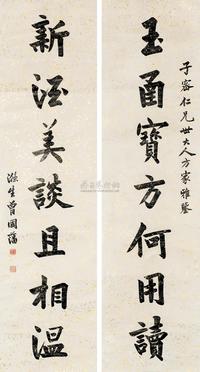 子容仁兄世大人方家雅鉴
玉函寶方何用讀
新酒美談且相溫
滌生曾國藩